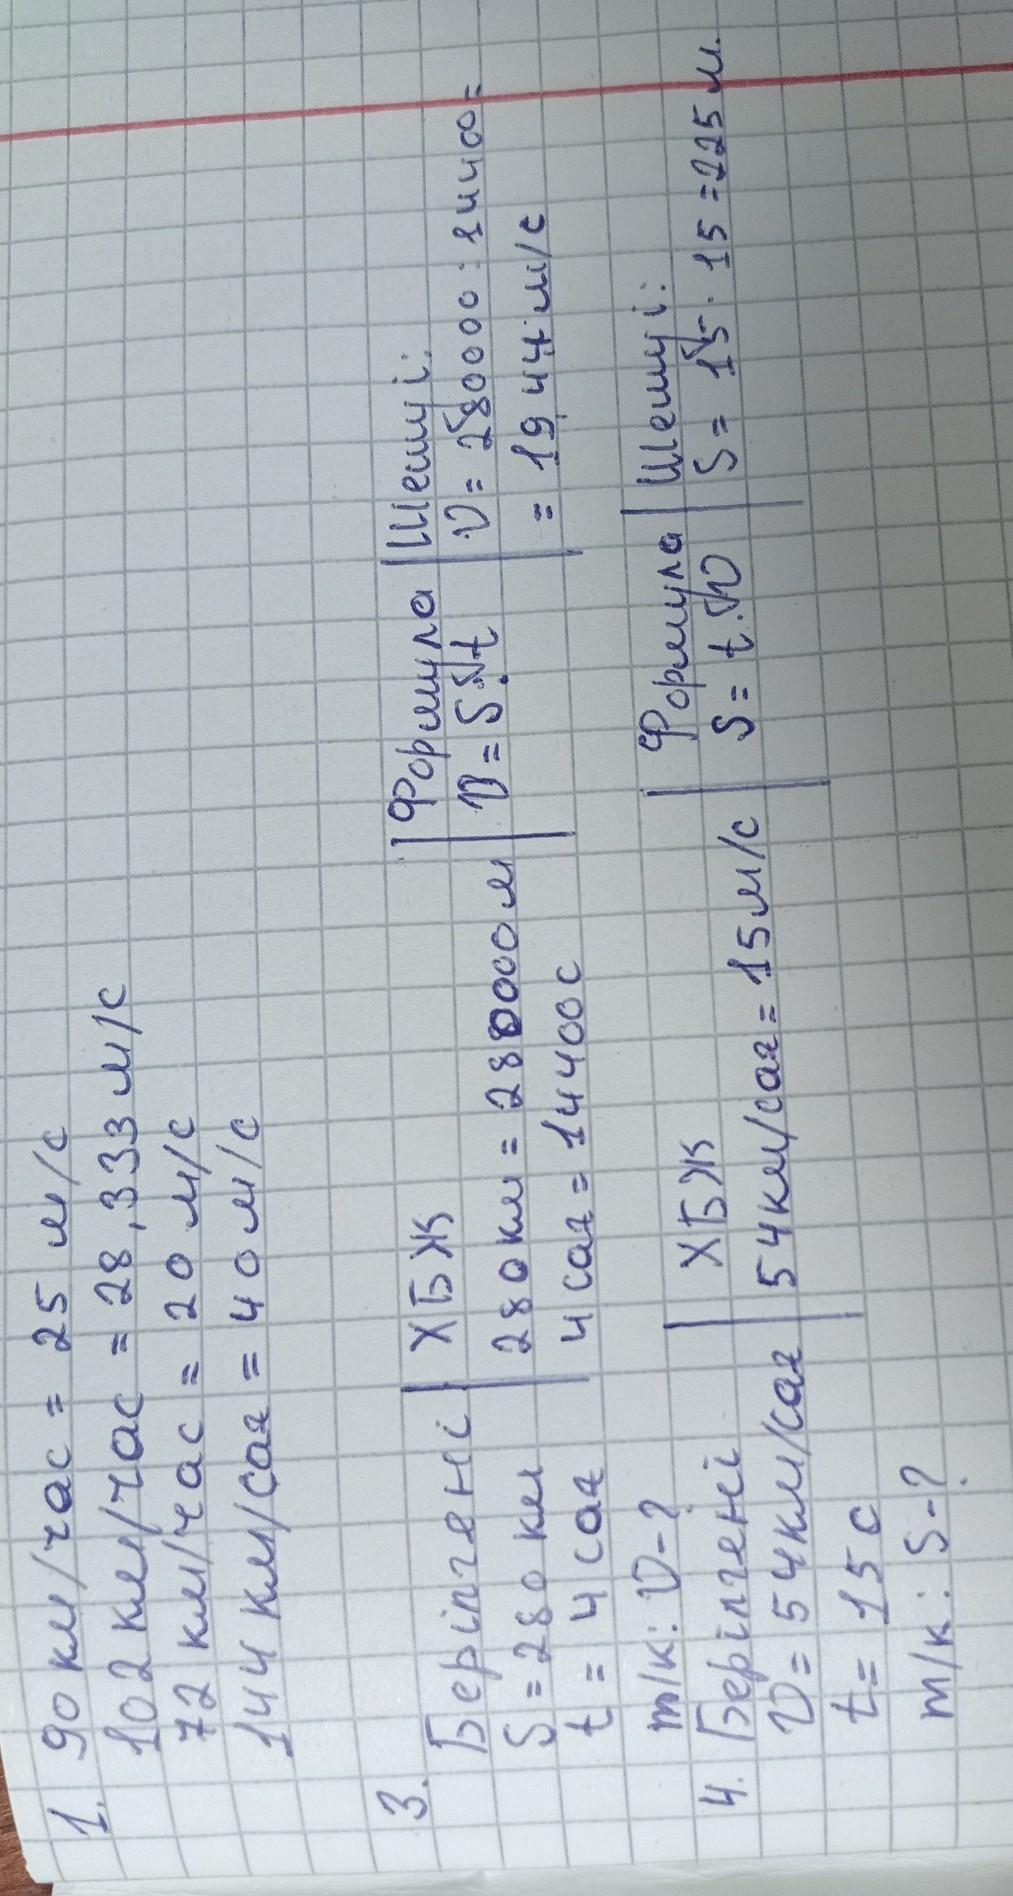 1. 90 км/час = 25 м/с
102 км/час = 28,333 м/с
72 км/час = 20 м/с
144 км/сағ = 40 м/с
3. Берілгені | ХБЖ | Формула | Шешуі:
S = 280 км | 280 км = 280000 м | v = S : t | v = 280000 : 14400 =
t = 4 сағ | 4 сағ = 14400 с | = 19,44 м/с
т/к: v - ?
4. Берілгені | ХБЖ | Формула | Шешуі:
v = 54 км/сағ | 54 км/сағ = 15 м/с | S = t · v | S = 15 · 15 = 225 м.
t = 15 с
т/к: S - ?